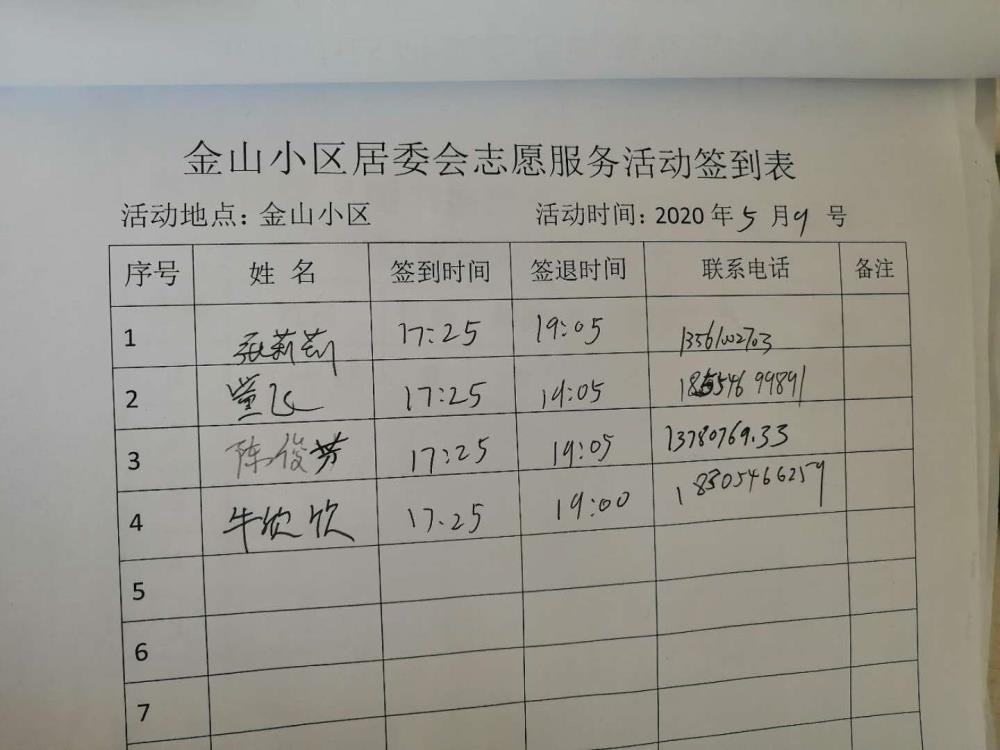 金山小区居委会志愿服务活动签到表
活动地点: 金山小区 活动时间: 2020 年 5 月 9 号
序号 姓 名 签到时间 签退时间 联系电话 备注
1 张莉莉 17:25 19:05
2 董飞 17:25 19:05 18554699891
3 陈俊芳 17:25 19:05
4 牛欣欣 17.25 19:00 18305466259
5
6
7